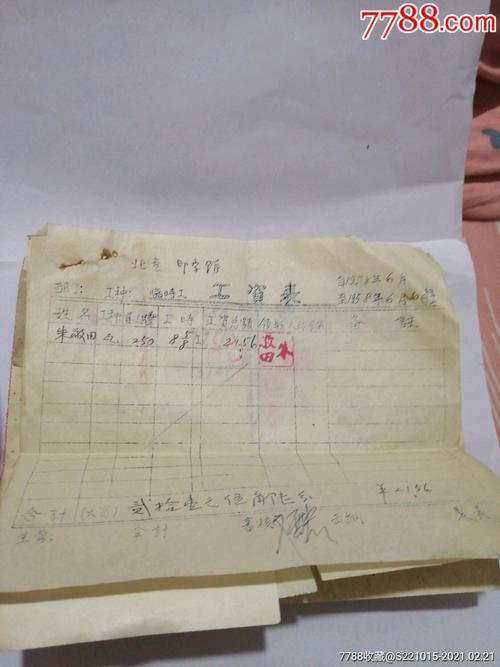 7788.com
北京 印字馆
部门: 工种: 临时工 工資表 自1958年6月
至1958年6月
姓名 工种 工時 工資总額 領款人印章 备註
朱啟田 2.50 8 5/8 21.56 啟田朱
合計(大写) 貳拾壹元伍角陆分 ￥21.56
主管: 会計 審核 制表
7788收藏@S221015-2021.02.21